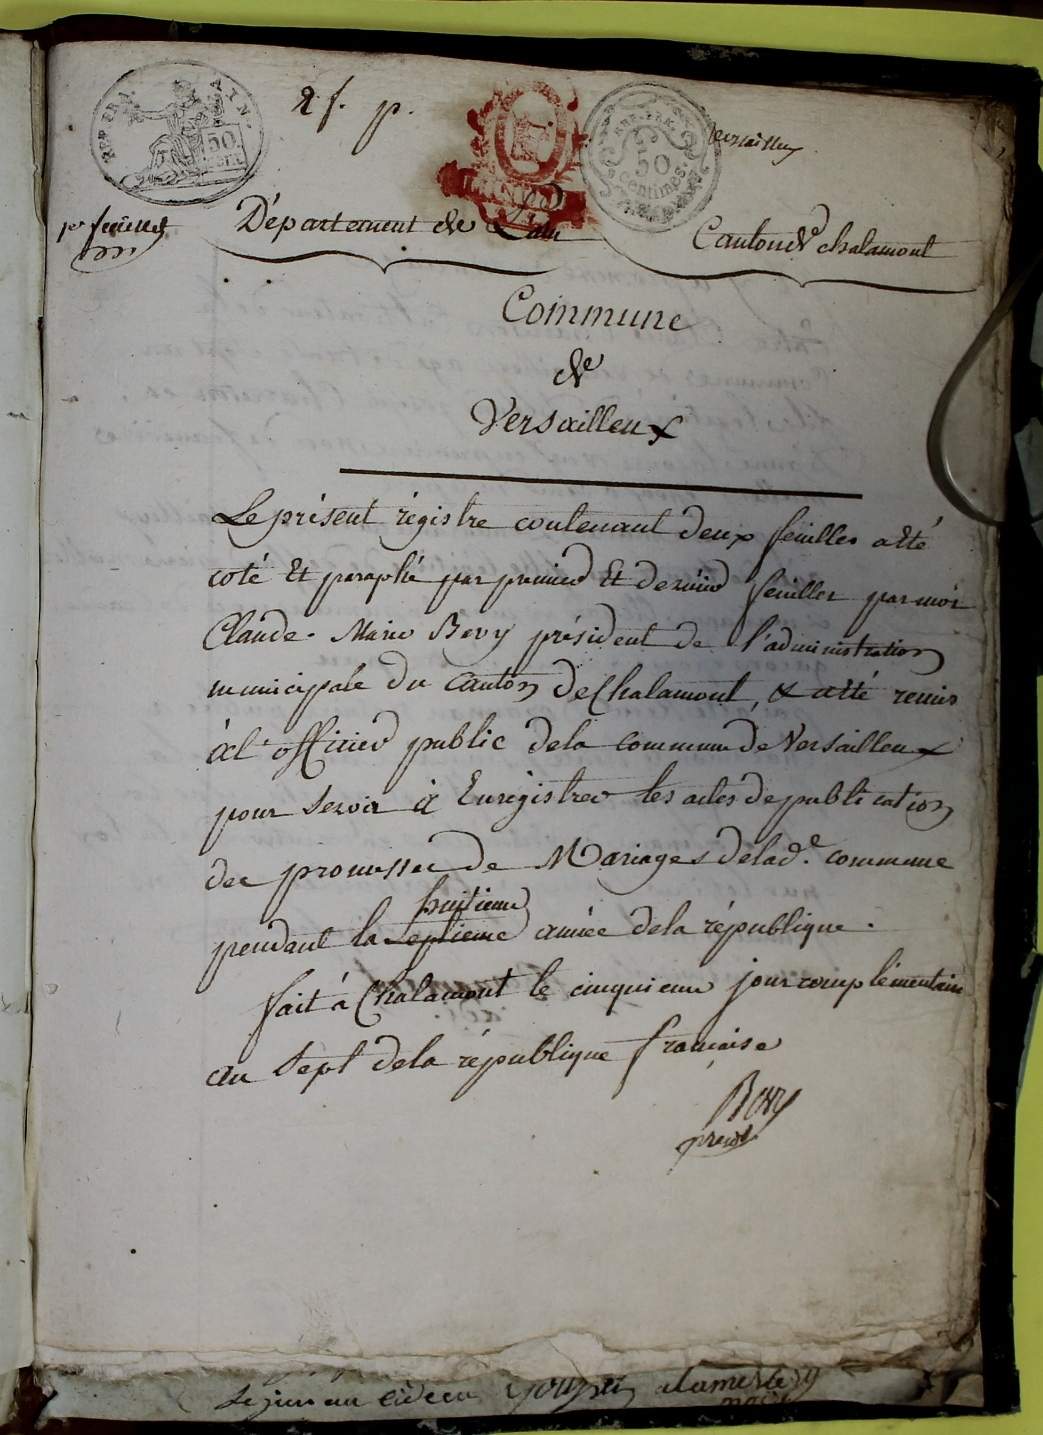 2. f. p.
versailleux
REP. FRA.
AIN.
50
REP. FRA.
50
centimes.
pr feuillet
Département de Lain
Canton de chalamont
Commune
de
Versailleux
Le présent régistre contenant deux feuilles atté
coté Et paraphé par premier Et dernier feuillet par moi
Claude-Marie Bovy président de l'administration
municipale du canton de Chalamont, & atté remis
àl'officier public dela commune de Versailleux
pour servir à Enregistrer les actes de publication
des promesses de Mariages delade. commune
huitieme
pendant la septieme année dela république.
fait à Chalamont le cinquieme jour complémentaire
an Sept dela république francaise
Bovy
presdt